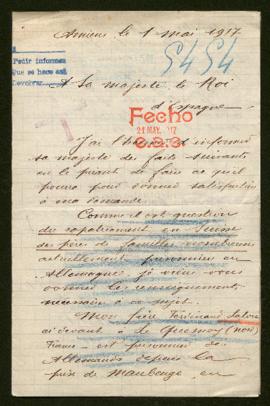 Amiens le 1 mai 1917
5454
Pedir informes
Que se haga así
Devolver
A Sa majesté le Roi
d'Espagne
Fecho
21 MAY. 917
J'ai l'honneur d'informer
sa majesté des faits suivants
en le priant de faire ce qu'il
pourra pour donner satisfaction
à ma demande.
Comme il est question
du rapatriement en Suisse
des pères de familles nombreuses
actuellement prisonniers en
Allemagne, je viens vous
donner les renseignements
nécessaires à ce sujet.
Mon frère Ferdinand
ci devant à le Quesnoy (nord)
France est prisonnier des
Allemands depuis la
prise de Maubeuge en